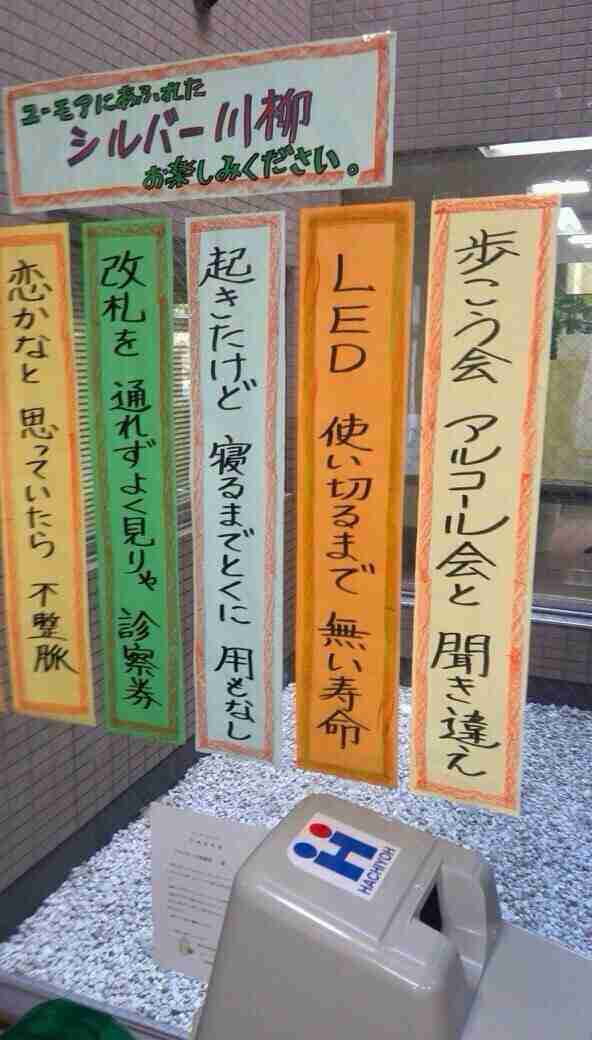 ユーモアにあふれた
シルバー川柳
お楽しみください。
歩こう会 アルコール会と 聞き違え
LED 使い切るまで 無い寿命
起きたけど 寝るまでとくに 用もなし
改札を 通れずよく見りゃ 診察券
恋かなと 思っていたら 不整脈
H
HACHIYOH